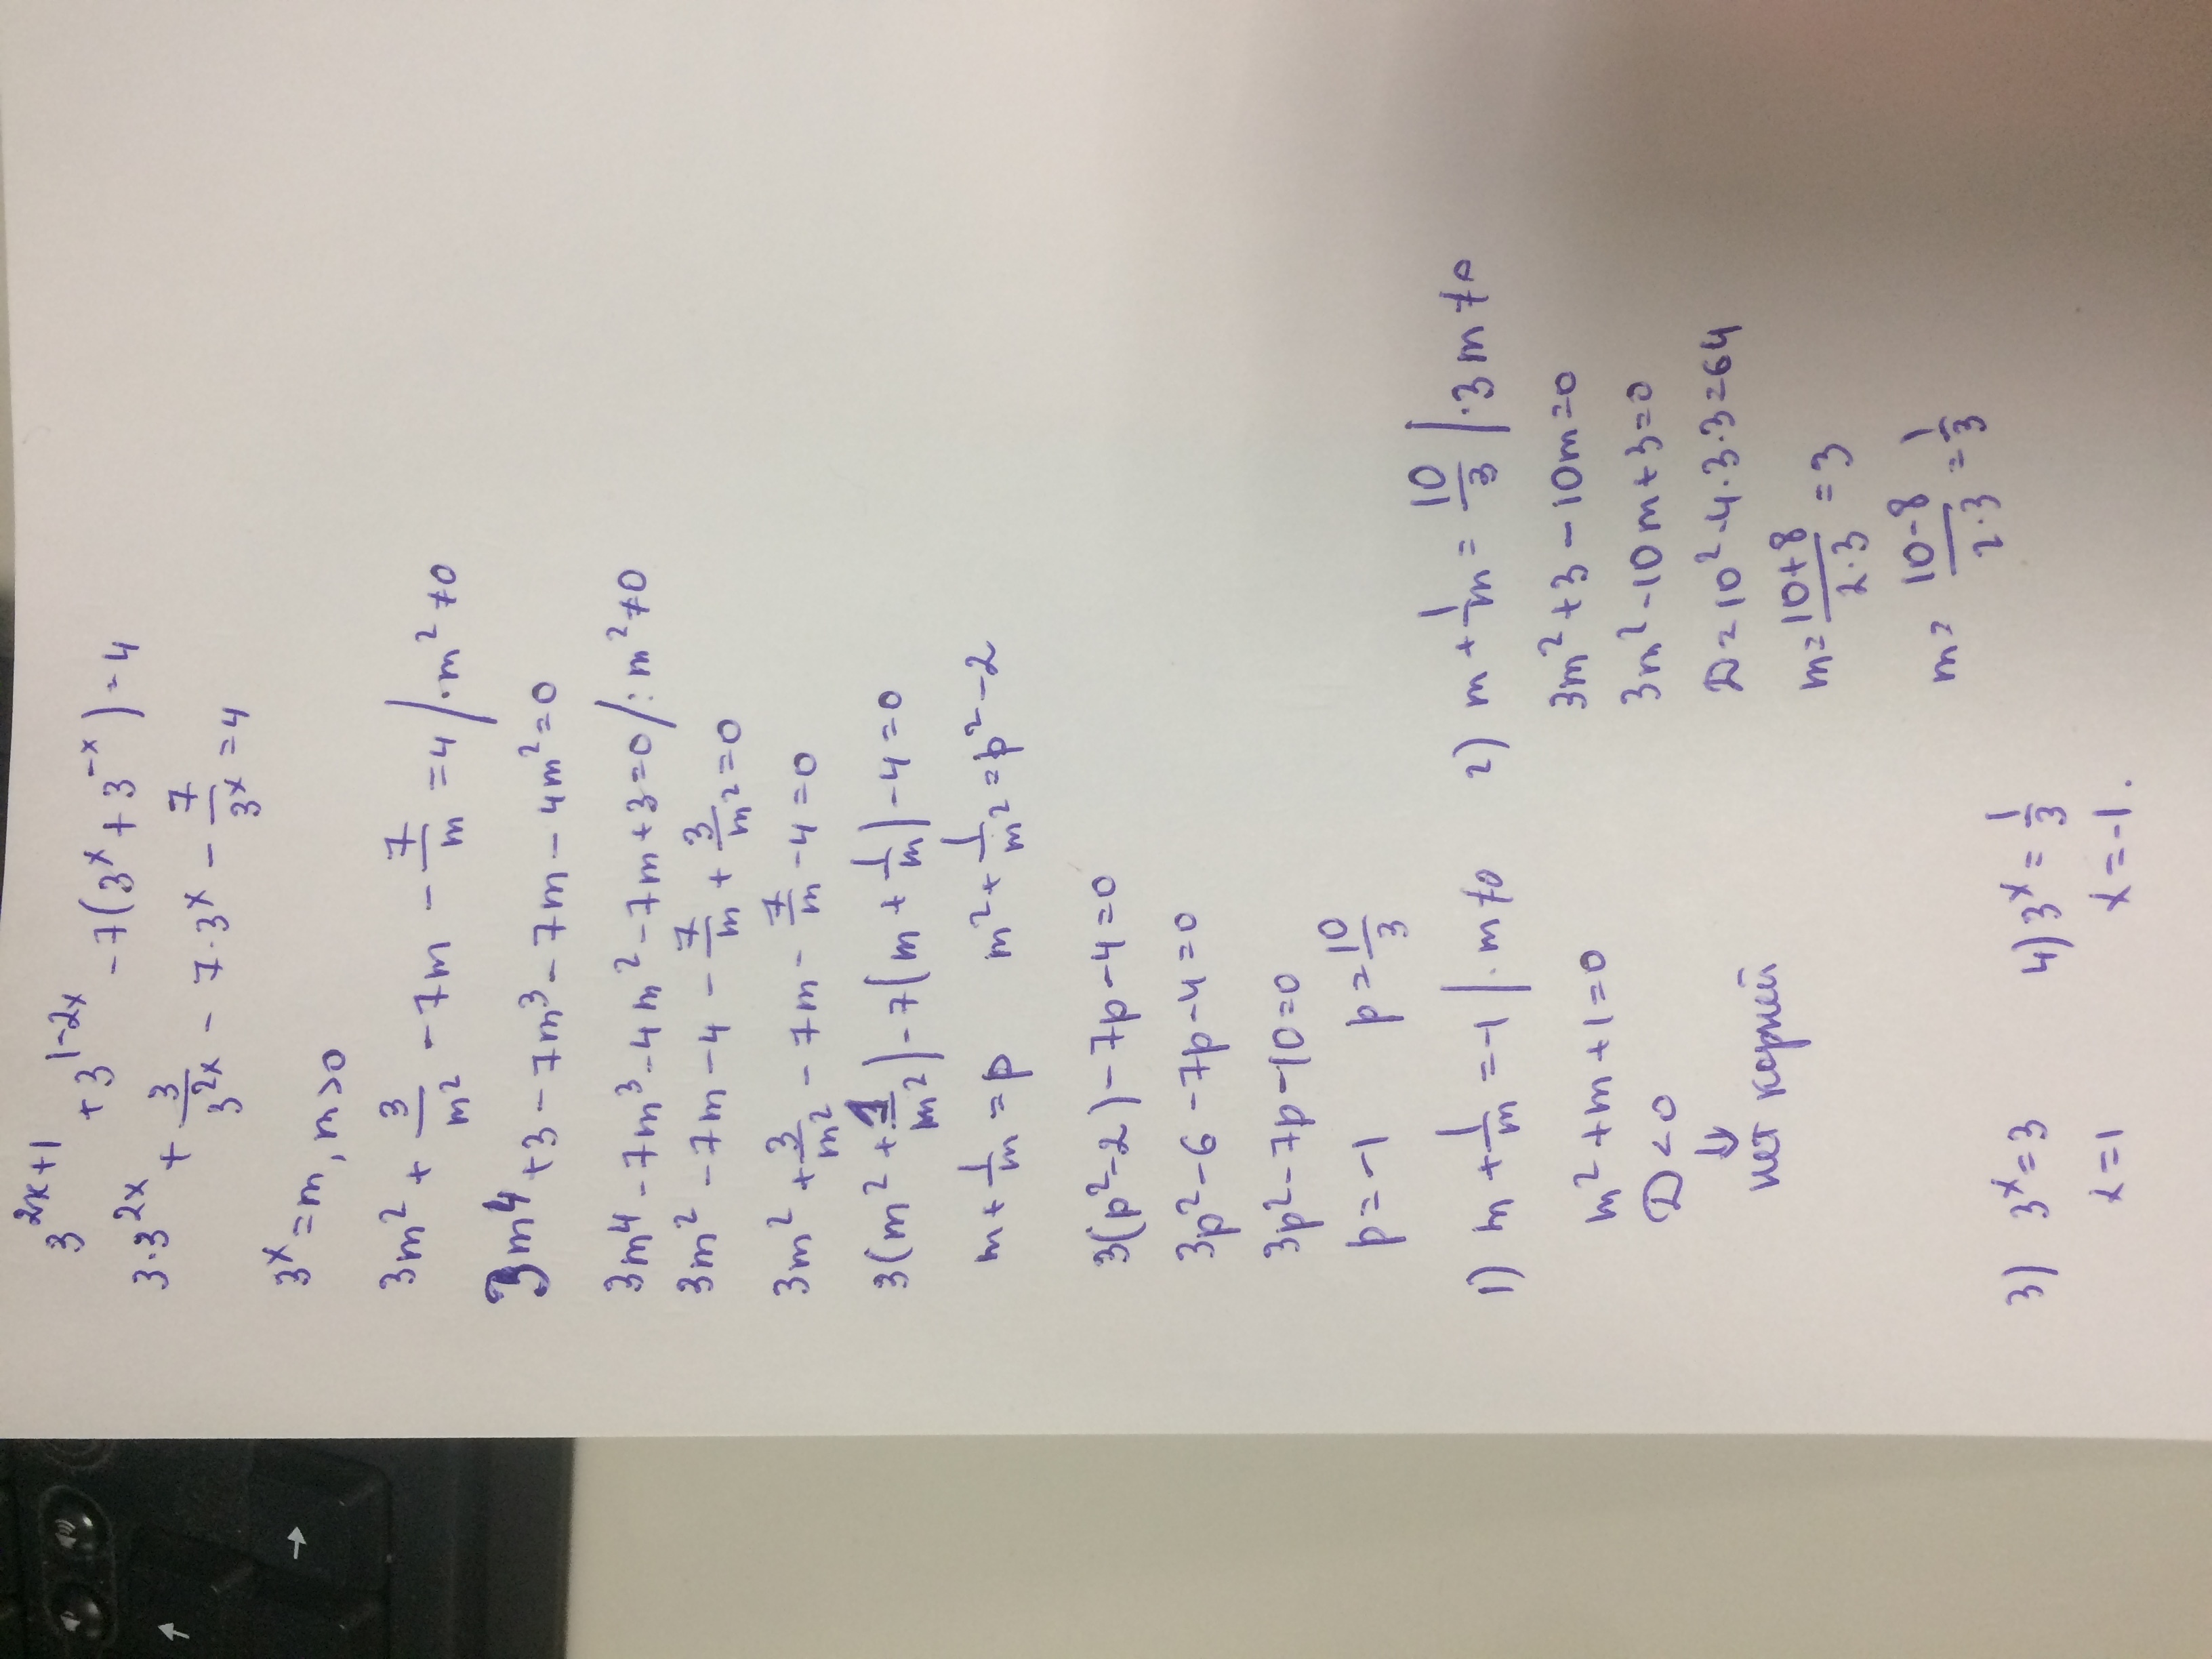 3^{2x+1} + 3^{1-2x} - 7(3^x + 3^{-x}) = 4
3·3^{2x} + 3/3^{2x} - 7·3^x - 7/3^x = 4
3^x = m, m>0
3m² + 3/m² - 7m - 7/m = 4 /·m² ≠0
3m⁴ + 3 - 7m³ - 7m - 4m² = 0
3m⁴ - 7m³ - 4m² - 7m + 3 = 0 /: m² ≠0
3m² - 7m - 4 - 7/m + 3/m² = 0
3m² + 3/m² - 7m - 7/m - 4 = 0
3(m² + 1/m²) - 7(m + 1/m) - 4 = 0
m + 1/m = p m² + 1/m² = p² - 2
3(p² - 2) - 7p - 4 = 0
3p² - 6 - 7p - 4 = 0
3p² - 7p - 10 = 0
p = -1 p = 10/3
1) m + 1/m = -1 |·m ≠0
m² + m + 1 = 0
D < 0
⇓
нет корней
2) m + 1/m = 10/3 |·3m ≠0
3m² + 3 - 10m = 0
3m² - 10m + 3 = 0
D = 10² - 4·3·3 = 64
m = (10+8)/(2·3) = 3
m = (10-8)/(2·3) = 1/3
3) 3^x = 3
x = 1
4) 3^x = 1/3
x = -1.